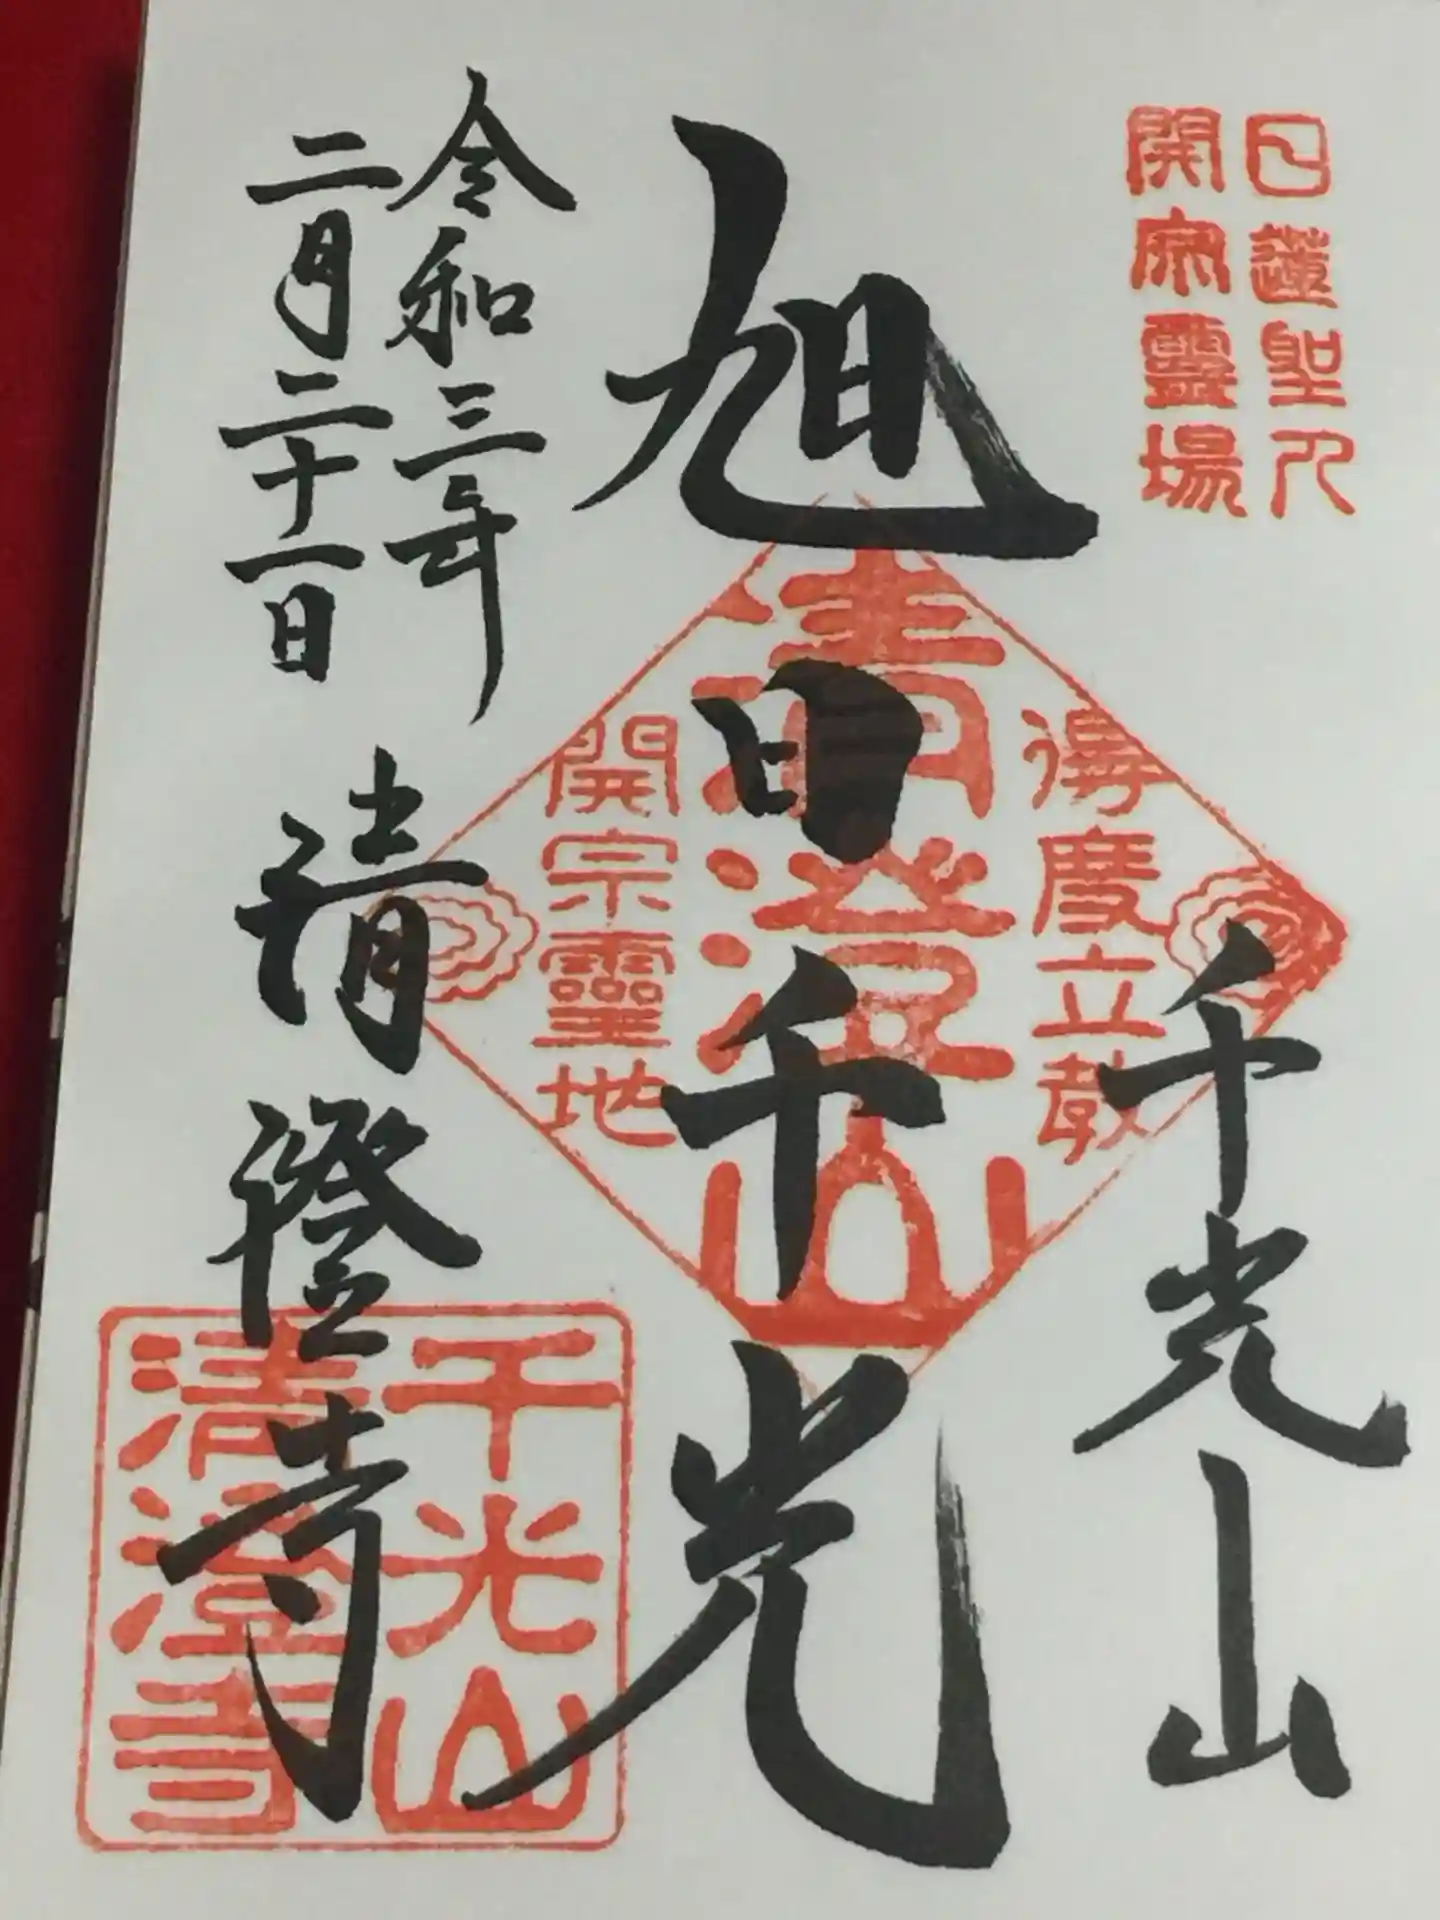 日蓮聖人
開宗霊場
千光山
旭日千光
得度立教
清澄山
開宗霊地
令和三年
二月二十一日
清澄寺
千光山
清澄寺